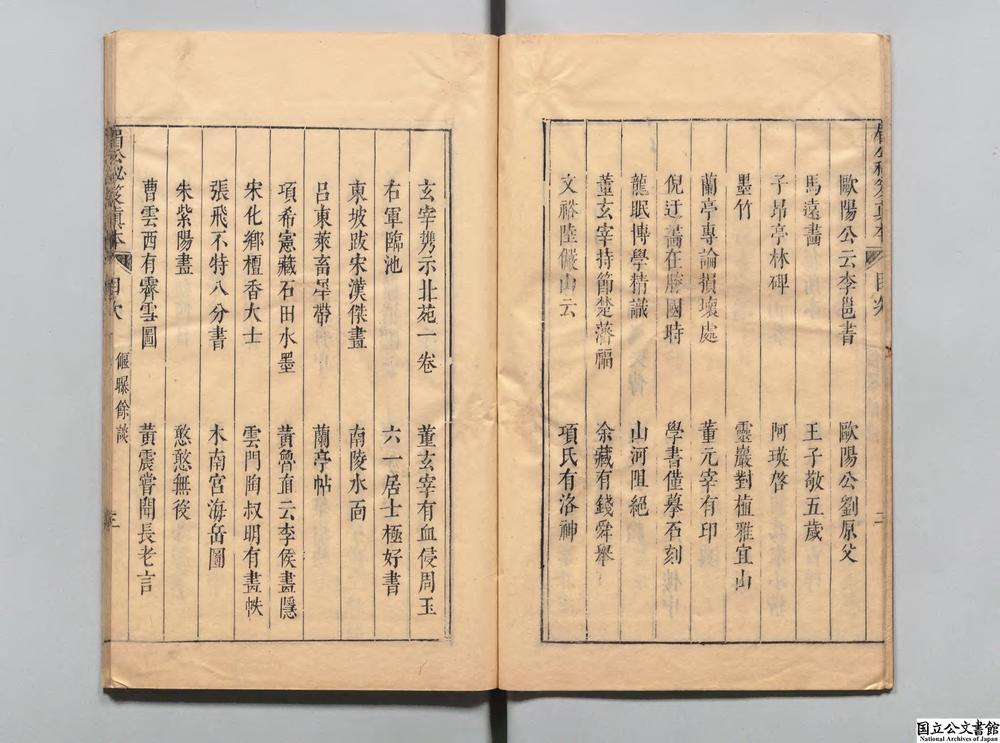 歐陽公云李邕書
歐陽公劉原父
馬遠畵
王子敬五歲
子昂亭林碑
阿瑛啓
墨竹
靈巖對植雅宜山
蘭亭專論損壞處
董元宰有印
倪迂畵在勝國時
學書僅摹石刻
龍眠博學精識
山河阻絕
董玄宰持節楚藩福
余藏有錢舜舉
文裕陸儼山云
項氏有洛神
玄宰携示北苑一卷
董玄宰有血侵周玉
右軍臨池
六一居士極好書
東坡跋宋漢傑畫
南陵水面
呂東萊畜犀帶
蘭亭帖
項希憲藏石田水墨
黃魯直云李侯畫隱
宋化鄉檀香大士
雲門陶叔明有畫帙
張飛不特八分書
木南宮海岳圖
朱紫陽畫
憨憨無後
曹雲西有霽雪圖
黃震嘗聞長老言
眉公秘笈真本
目次
偃曝餘談
三
国立公文書館
National Archives of Japan